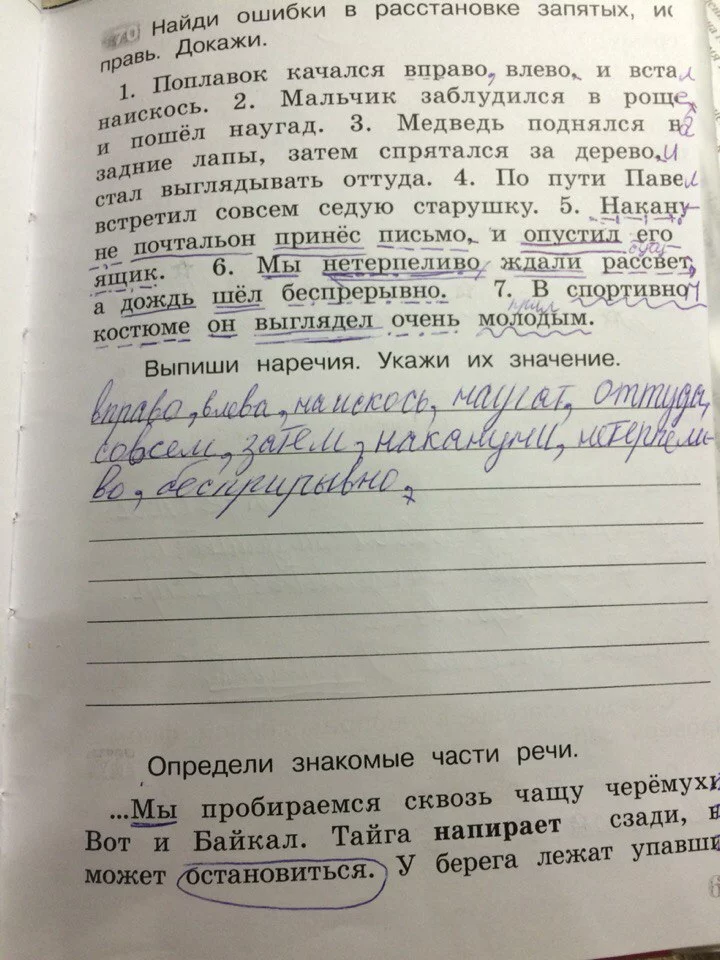 Найди ошибки в расстановке запятых, ис
правь. Докажи.
1. Поплавок качался вправо, влево, и встал
наискось. 2. Мальчик заблудился в роще,
и пошёл наугад. 3. Медведь поднялся на
задние лапы, затем спрятался за дерево, и
стал выглядывать оттуда. 4. По пути Павел
встретил совсем седую старушку. 5. Накану-
не почтальон принёс письмо, и опустил его
ящик. 6. Мы нетерпеливо ждали рассвет,
а дождь шёл беспрерывно. 7. В спортивно
костюме он выглядел очень молодым.
Выпиши наречия. Укажи их значение.
вправо, влева, наискось, наугат, оттуда,
совсем, затем, накануни, нетерпели-
во, бесприрывно,
Определи знакомые части речи.
...Мы пробираемся сквозь чащу черёмухи
Вот и Байкал. Тайга напирает сзади, н
может остановиться. У берега лежат упавши